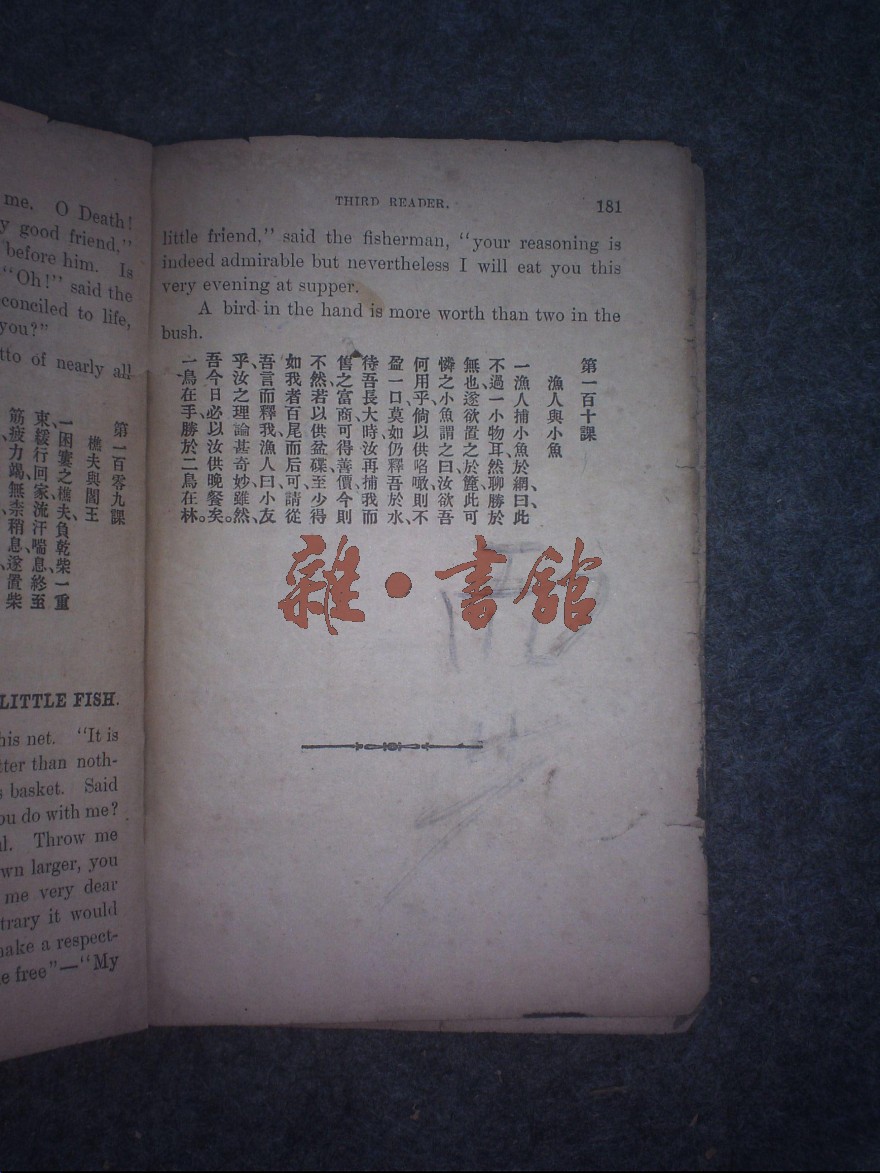 me. O Death!
y good friend,"
before him. Is
"Oh!" said the
conciled to life,
you?"
tto of nearly all
第一百零九課
樵夫與閻王
一困窶之樵夫、負乾柴一重
束、緩行回家、流汗喘息、終至
筋疲力竭、無柰稍息、遂置柴
LITTLE FISH.
his net. "It is
tter than noth-
s basket. Said
ou do with me?
l. Throw me
wn larger, you
me very dear
trary it would
make a respect-
e free"—"My
THIRD READER. 181
little friend," said the fisherman, "your reasoning is
indeed admirable but nevertheless I will eat you this
very evening at supper.
A bird in the hand is more worth than two in the
bush.
第一百十課
漁人與小魚
一漁人捕小魚於網、曰、此
不過一小物耳、然聊勝於
無也、遂欲置之於籠、此可
憐之小魚謂之曰、汝欲吾
何用乎、倘以供啗噉、則不
盈一口、莫如仍釋吾於水、
待吾長大時、汝再捕我而
售之富商、可得善價、今則
不然、若以供盆碟、至少得
如我者百尾而后可、請從
吾言而釋我、漁人曰、小友
乎、汝之理論甚奇妙、雖然、
吾今日必以汝供晚餐矣。
一鳥在手、勝於二鳥在林。
雜·書館